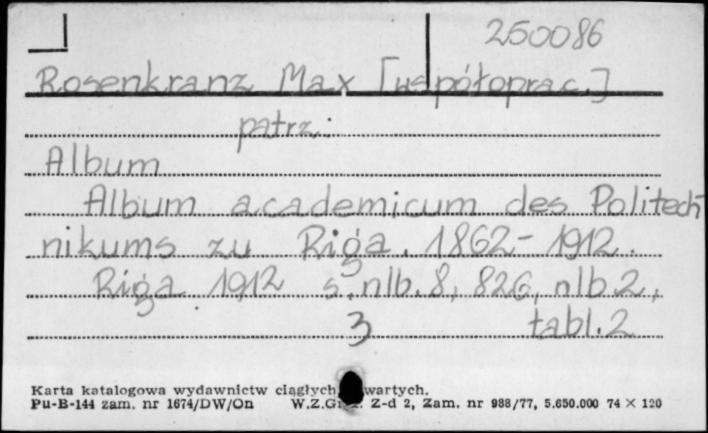 250086
Rosenkranz Max [współoprac.]
patrz:
Album
Album academicum des Politech-
nikums zu Riga. 1862-1912.
Riga 1912 s. nlb. 8, 826, nlb. 2,
3 tabl. 2
Karta katalogowa wydawnictw ciągłych wartych.
Pu-B-144 zam. nr 1674/DW/On W.Z.G Z-d 2, Zam. nr 988/77, 5.650.000 74 × 120